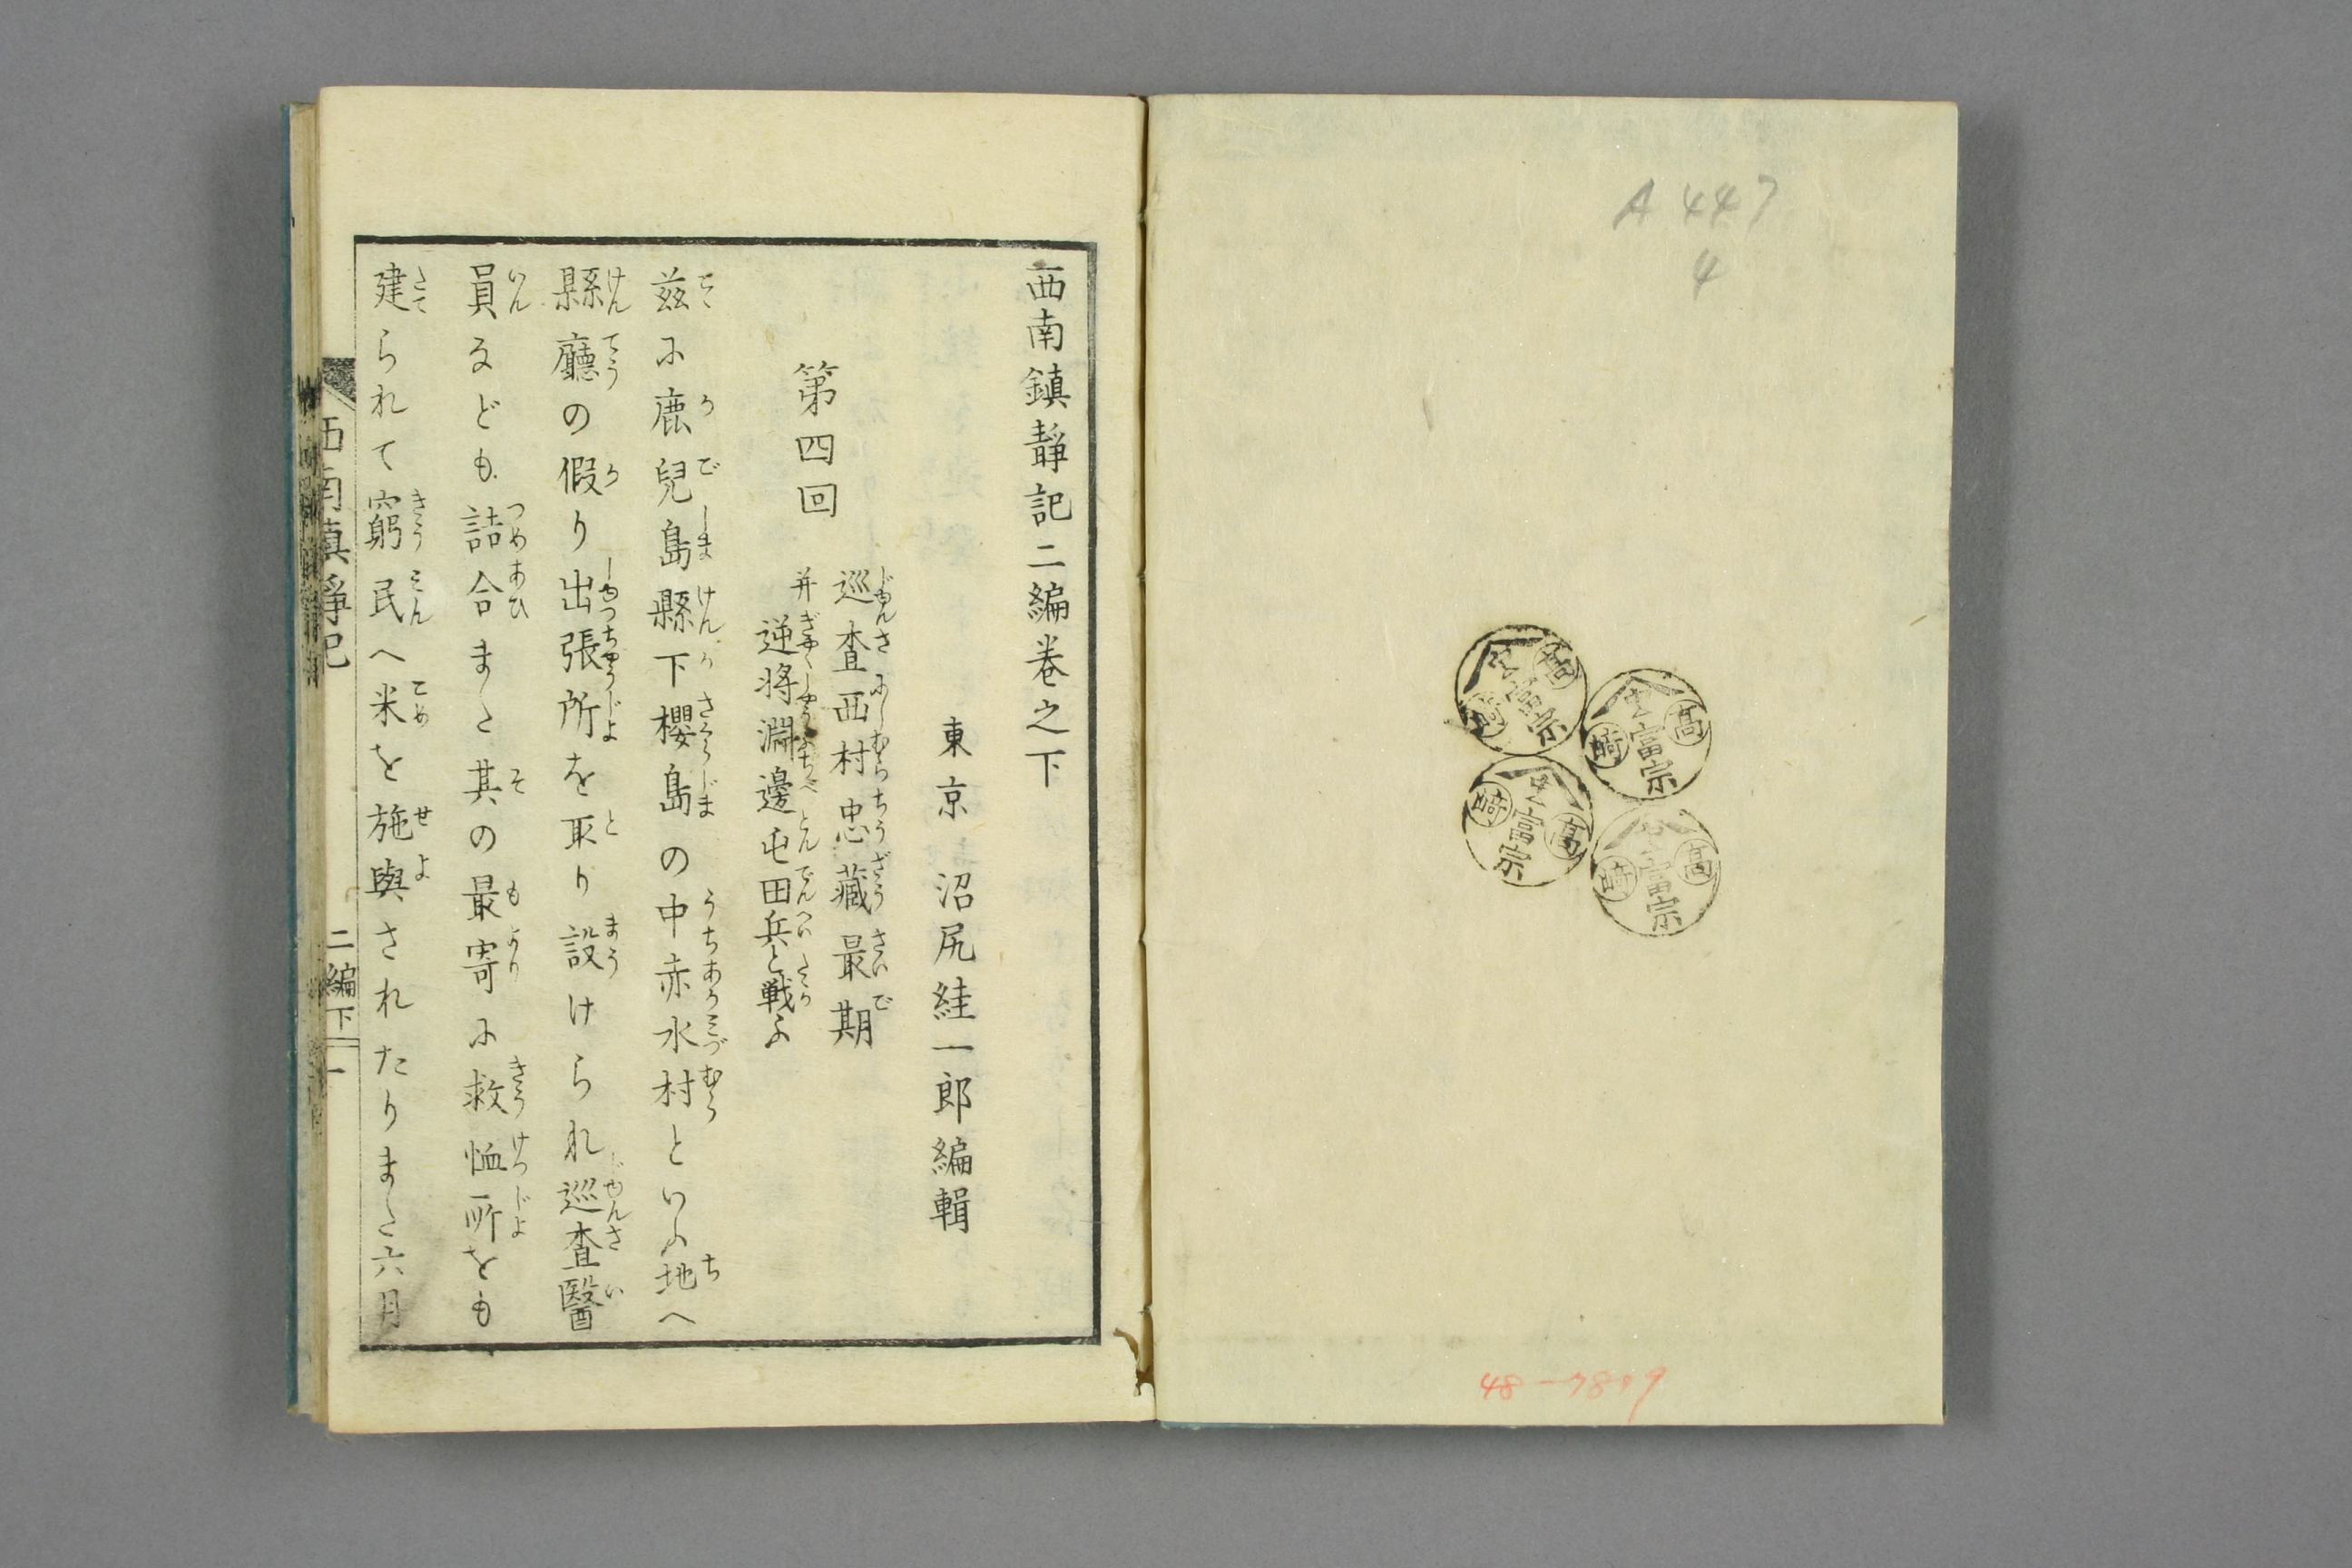 A447
4
高
崎
富宗
高
崎
富宗
高
崎
富宗
高
崎
富宗
48-7809
西南鎮静記二編巻之下
東京 沼尻絓一郎編輯
第四回
巡査西村忠藏最期
并逆将淵邊屯田兵と戦ふ
茲に鹿兒島縣下櫻島の中赤水村といふ地へ
縣廳の假り出張所を取り設けられ巡査醫
員なども詰合また其の最寄に救恤所をも
建られて窮民へ米を施與されたりまた六月
西南鎮静記
二編下
一